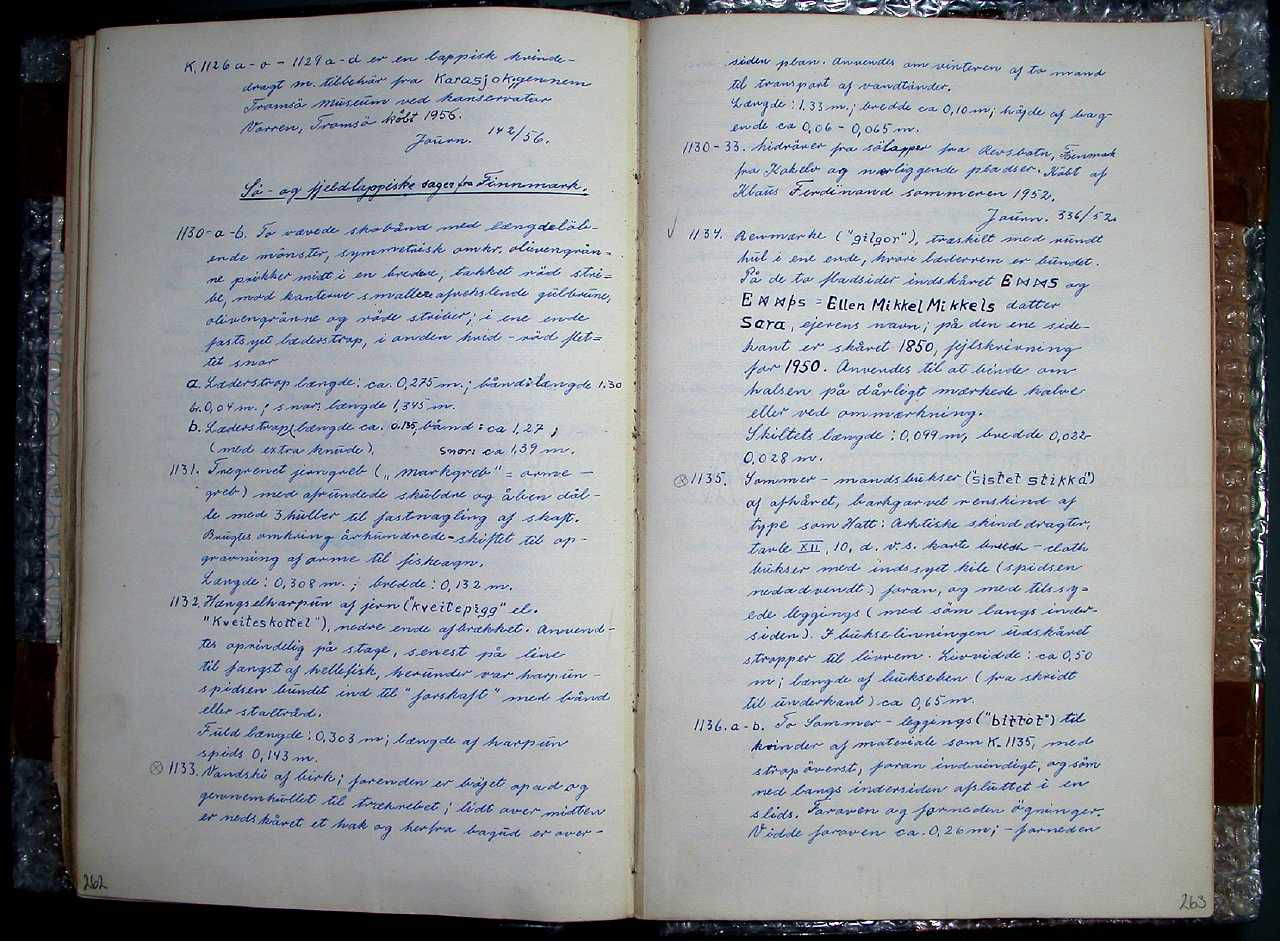 K. 1126 a-o - 1129 a-d er en lappisk kvinde-
dragt m. tilbehör fra Karasjok, gennem
Tromsö Museum ved konservator
Vorren, Tromsö köbt 1956.
Journ. 142/56.
Sö- og fjeldlappiske sager fra Finnmark.
1130-a-b. To vævede skobånd med længdelöb-
ende mönster, symmetrisk omkr. olivengrön-
ne prikker midt i en bredere, takket röd stri-
be, mod kanterne smallere afvekslende gulbrune,
olivengrönne og röde striber; i ene ende
fastsyet læderstrop, i anden hvid-röd flet-
tet snor
a. Læderstrop længde: ca. 0,275 m.; bånd: længde 1.30
b. 0,04 m.; snor: længde 1,345 m.
b. Læderstrop længde ca. 0.135, bånd: ca 1,27;
(med extra knude), snor: ca 1,39 m.
1131. Tregrenet jerngreb („markgreb" = orme-
greb) med afrundede skuldre og åben döl-
le med 3 huller til fastnagling af skaft.
Brugtes omkring århundrede-skiftet til op-
gravning af orme til fiskeagn.
Længde: 0,308 m.; bredde: 0,132 m.
1132. Hængselharpun af jern ("kveitepigg" el.
"Kveiteskottel"), nedre ende afbrækket. Anvend-
tes oprindelig på stage, senest på line
til fangst af hellefisk, herunder var harpun-
spidsen bundet ind til "forskaft" med bånd
eller ståltråd.
Fuld længde: 0,303 m; længde af harpun
spids 0,143 m.
1133. Vandski af birk; forenden er böjet opad og
gennemhullet til trækrebet; lidt over midten
er nedskåret et hak og herfra bagud er over-
262
siden plan. Anvendes om vinteren af to mand
til transport af vandtönder.
Længde: 1.33 m.; bredde ca 0,10 m; höjde af bag-
ende ca 0,06 - 0,065 m.
1130-33. hidrörer fra sölapper fra Revsbotn, Finmark
fra Kokelv og nærliggende pladser. Köbt af
Klaus Ferdinand sommeren 1952.
Journ. 336/52.
1134. Renmærke ("gilgor"), træskilt med rundt
hul i ene ende, hvori læderrem er bundet.
På de to fladsider indskåret E⋈⋈S og
E⋈⋈þs = Ellen Mikkel Mikkels datter
Sara, ejerens navn; på den ene side-
kant er skåret 1850, fejlskrivning
for 1950. Anvendes til at binde om
halsen på dårligt mærkede kalve
eller ved ommærkning.
Skiltets længde: 0,099 m, bredde 0,022-
0,028 m.
1135. Sommer-mandsbukser ("sistet stikka")
af afhåret, barkgarvet renskind af
type som Hatt: Arktiske skinddragter,
tavle XII, 10. d.v.s. korte breech-cloth
bukser med indsyet kile (spidsen
nedadvendt) foran, og med tilssy-
ede leggings (med söm langs inder-
siden). I bukselinningen udskåret
stropper til livrem. Livvidde: ca 0,50
m; længde af bukseben (fra skridt
til underkant) ca 0,65 m.
1136. a-b. To Sommer-leggings ("bittot") til
kvinder af materiale som K. 1135, med
strop överst, foran indvendigt, og söm
ned langs indersiden afsluttet i en
slids. Foroven og forneden ögninger.
Vidde foroven ca. 0,26 m; - forneden
263